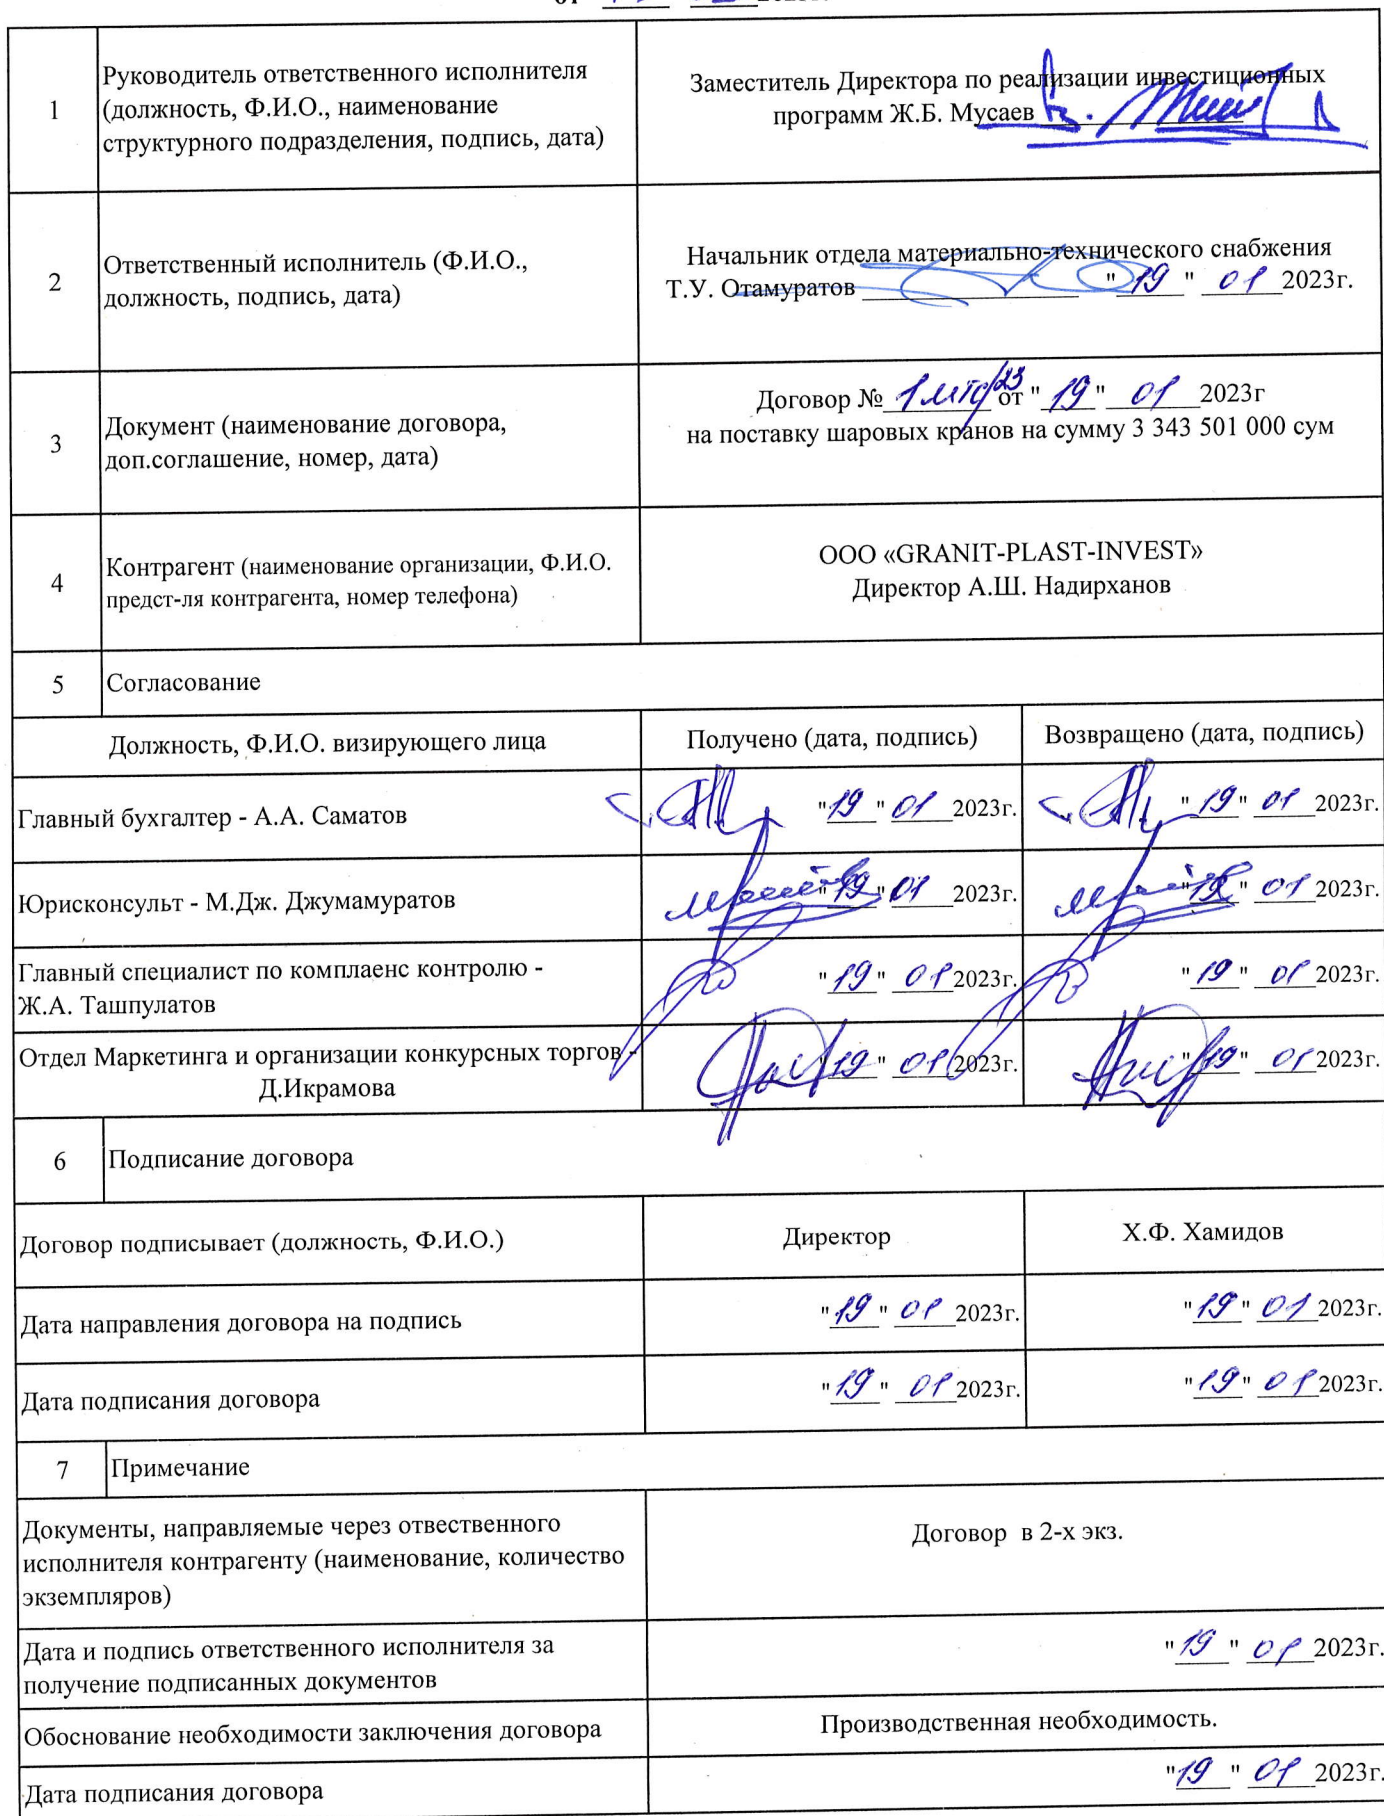 1
Руководитель ответственного исполнителя
(должность, Ф.И.О., наименование
структурного подразделения, подпись, дата)
Заместитель Директора по реализации инвестиционных
программ Ж.Б. Мусаев
2
Ответственный исполнитель (Ф.И.О.,
должность, подпись, дата)
Начальник отдела материально-технического снабжения
Т.У. Отамуратов ________________ "19" 01 2023г.
3
Документ (наименование договора,
доп.соглашение, номер, дата)
Договор № 1мтс/23 от "19" 01 2023г
на поставку шаровых кранов на сумму 3 343 501 000 сум
4
Контрагент (наименование организации, Ф.И.О.
предст-ля контрагента, номер телефона)
ООО «GRANIT-PLAST-INVEST»
Директор А.Ш. Надирханов
5 Согласование
Должность, Ф.И.О. визирующего лица Получено (дата, подпись) Возвращено (дата, подпись)
Главный бухгалтер - А.А. Саматов "19" 01 2023г. "19" 01 2023г.
Юрисконсульт - М.Дж. Джумамуратов "19" 01 2023г. "19" 01 2023г.
Главный специалист по комплаенс контролю -
Ж.А. Ташпулатов
"19" 01 2023г. "19" 01 2023г.
Отдел Маркетинга и организации конкурсных торгов -
Д.Икрамова
"19" 01 2023г. "19" 01 2023г.
6 Подписание договора
Договор подписывает (должность, Ф.И.О.) Директор Х.Ф. Хамидов
Дата направления договора на подпись "19" 01 2023г. "19" 01 2023г.
Дата подписания договора "19" 01 2023г. "19" 01 2023г.
7 Примечание
Документы, направляемые через отвественного
исполнителя контрагенту (наименование, количество
экземпляров)
Договор в 2-х экз.
Дата и подпись ответственного исполнителя за
получение подписанных документов
"19" 01 2023г.
Обоснование необходимости заключения договора Производственная необходимость.
Дата подписания договора "19" 01 2023г.